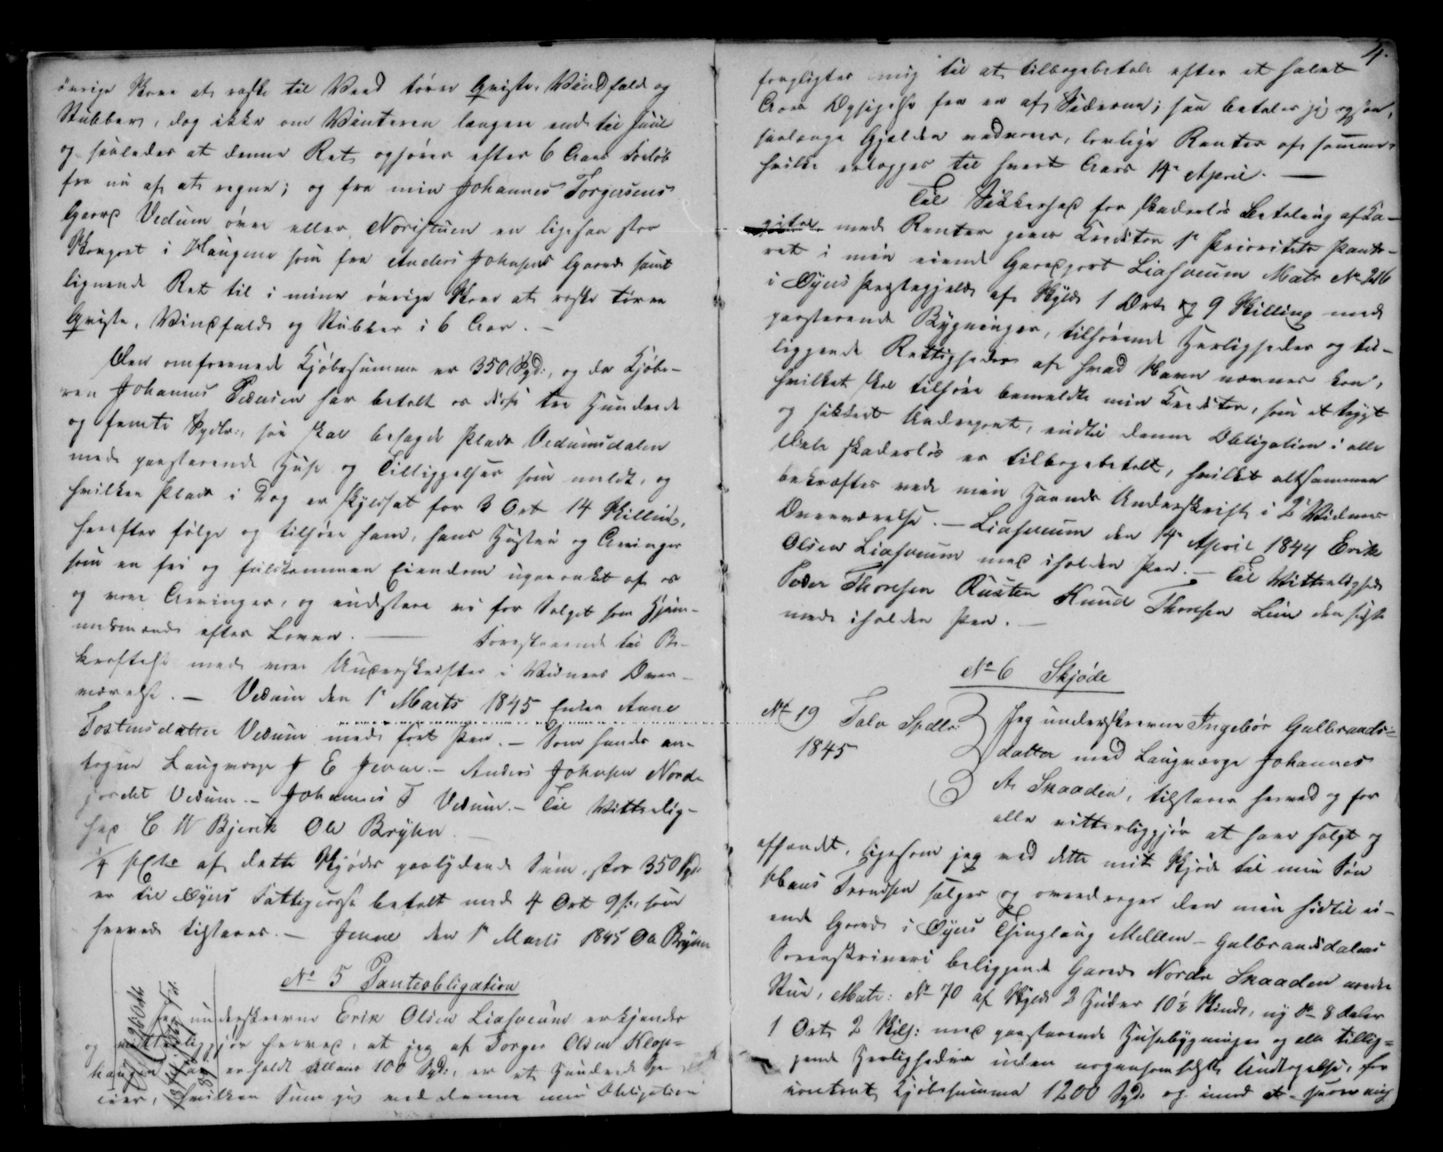 øvrige Skove at raske til Veed tørre Qviste, Vindfald og
Stubber, dog ikke om Vinteren længere end til Juul
og saaledes at denne Ret ophører efter 6 Aars Forløb
fra nu af at regne; og fra min Johannes Torgersens
Gaard Vedum øvre eller Noristuen en ligesaa stor
Skougret i Haugene som fra Anders Johnsens Gaard samt
lignende Ret til i mine øvrige Skove at raske tørre
Qviste, Vindfald og Stubber i 6 Aar. –
Den omforenede Kjøbesumma er 350 Spd:, og da Kjøbe-
ren Johannes Pedersen har betalt os disse tre Hundrede
og femti Spdlr:, saa skal besagde Plads Vedumsdalen
med paastaaende Huse og Tilliggelser som meldt, og
hvilken Plads i Dag er skyldsat for 3 Ort 14 Skilling,
herefter følge og tilhøre ham, hans Hustru og Arvinger
som en fri og fuldkommen Eiendom upaaanket af os
og vore Arvinger, og indestaae vi for Salget som Hjem-
melsmænd efter Loven. — Forestaaende til Be-
kræftelse med vore Underskrifter i Vidners Over-
værelse. – Vedum den 1ste Marts 1845 Enken Anne
Tostensdatter Vedum med ført Pen. – Som hendes an-
tagne Laugværge J E Jevne – Anders Johnsen Nord-
jordet Vedum. – Johannes T Vedum. – Til Vitterlig-
hed C W Bjerck Ole Bryhn
1/4 pCto af dette Skjødes paalydende Sum, stor 350 Spd:
er til Øyers Fattigcasse betalt med 4 Ort 9 s., som
herved tilstaaes. – Jevne den 1ste Marts 1845 Ole Bryhn
No 5 Panteobligation
Jeg underskrevne Erik Olsen Liashaum erkjender
og vitterliggjør herved, at jeg af Torger Olsen Klop-
haugen har erholdt tillaans 100 Spd:, er et Hundrede Spe-
cier, hvilken Sum jeg ved denne min Obligation
4.
forpligter mig til at tilbagebetale efter et halvt
Aars Opsigelse fra en af Siderne; saa betaler jeg og saa,
saalænge Gjelden vedvarer, lovlige Renter af samme,
hvilke erlægges til hvert Aars 14. April. —
Til Sikkerhed for skadesløs Betaling af Ca-
pital med Renter gives Creditor 1ste Prioritets Pante-
ret i min eiende Gaardpart Liashaum Matr No 216
i Øyers Præstegjeld af Skyld 1 Ort og 9 Skilling med
paastaaende Bygninger, tilhørende Herligheder og til-
liggende Rettigheder af hvad Navn nævnes kan,
hvilket skal tilhøre bemeldte min Creditor, som et trygt
og sikkert Underpant, indtil denne Obligation i alle
Dele skadesløs er tilbagebetalt, hvilket altsammen
bekræftes ved min Haands Underskrift i 2de Vidners
Overværelse. – Liashaum den 14. April 1844 Erik
Olsen Liashaum med iholden Pen. – Til Vitterlighed
Peder Thoresen Rusten Knud Thoresen Lien den sidste
med iholden Pen. –
No 6 Skjøde
Nt 19 Tolv Spdlr
1845
Jeg underskrevne Ingebor Gulbrands-
datter med Laugværge Johannes
A. Skaaden, tilstaaer herved og for
alle vitterliggjør at have solgt og
afhændet, ligesom jeg ved dette mit Skjøde til min Søn
Hans Trondsen sælger og overdrager den min hidtil ei-
ende Gaard i Øyers Thinglaug Mellem-Gulbrandsdalens
Sorenskriveri beliggende Gaard Nordre Skaaden øvre
Stue, Matr: No 70 af Skyld 2 Huder 10½ Skind, ny Do 8 Daler
1 Ort 2 Skil: med paastaaende Huusebygninger og alle tillig-
gende Herligheder uden nogensomhelst Undtagelse, for
contant Kjøbesumma 1200 Spd: og imod at svare mig